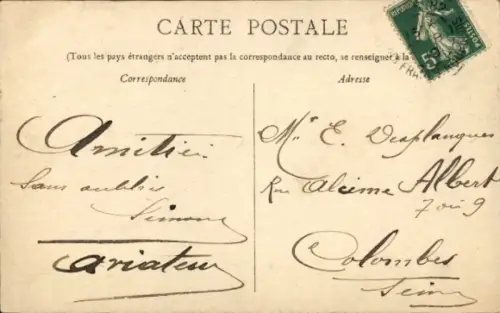 CARTE POSTALE
(Tous les pays étrangers n'acceptent pas la correspondance au recto, se renseigner à la
Correspondance
Adresse
Amitié
Sans oublie
Simon
Aviateur
Mr E. Desplanques
Rue Alcime Albert
7 ou 9
Colombes
Seine
5
POSTES